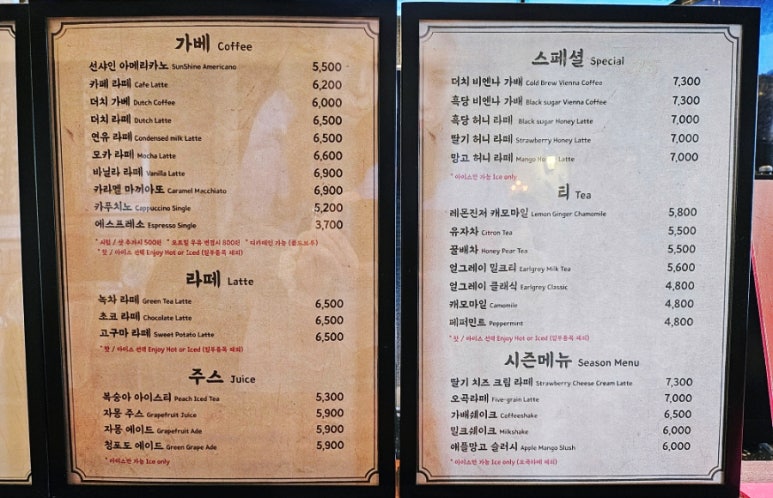 가베 Coffee
선샤인 아메리카노 SunShine Americano 5,500
카페 라떼 Cafe Latte 6,200
더치 가베 Dutch Coffee 6,000
더치 라떼 Dutch Latte 6,500
연유 라떼 Condensed milk Latte 6,500
모카 라떼 Mocha Latte 6,600
바닐라 라떼 Vanilla Latte 6,900
카라멜 마끼아또 Caramel Macchiato 6,900
카푸치노 Cappuccino Single 5,200
에스프레소 Espresso Single 3,700
* 시럽 / 샷 추가시 500원 * 오트밀 우유 변경시 800원 * 디카페인 가능 (콜드브루)
* 핫 / 아이스 선택 Enjoy Hot or Iced (일부품목 제외)
라떼 Latte
녹차 라떼 Green Tea Latte 6,500
초코 라떼 Chocolate Latte 6,500
고구마 라떼 Sweet Potato Latte 6,500
* 핫 / 아이스 선택 Enjoy Hot or Iced (일부품목 제외)
주스 Juice
복숭아 아이스티 Peach Iced Tea 5,300
자몽 주스 Grapefruit Juice 5,900
자몽 에이드 Grapefruit Ade 5,900
청포도 에이드 Green Grape Ade 5,900
* 아이스만 가능 Ice only
스페셜 Special
더치 비엔나 가배 Cold Brew Vienna Coffee 7,300
흑당 비엔나 가배 Black sugar Vienna Coffee 7,300
흑당 허니 라떼 Black sugar Honey Latte 7,000
딸기 허니 라떼 Strawberry Honey Latte 7,000
망고 허니 라떼 Mango Latte 7,000
* 아이스만 가능 Ice only
티 Tea
레몬진저 캐모마일 Lemon Ginger Chamomile 5,800
유자차 Citron Tea 5,500
꿀배차 Honey Pear Tea 5,500
얼그레이 밀크티 Earlgrey Milk Tea 5,600
얼그레이 클래식 Earlgrey Classic 4,800
캐모마일 Camomile 4,800
페퍼민트 Peppermint 4,800
* 핫 / 아이스 선택 Enjoy Hot or Iced (일부품목 제외)
시즌메뉴 Season Menu
딸기 치즈 크림 라떼 Strawberry Cheese Cream Latte 7,300
오곡라떼 Five-grain Latte 7,000
가배쉐이크 Coffeeshake 6,500
밀크쉐이크 Milkshake 6,000
애플망고 슬러시 Apple Mango Slush 6,000
* 아이스만 가능 Ice only (오곡라떼 제외)